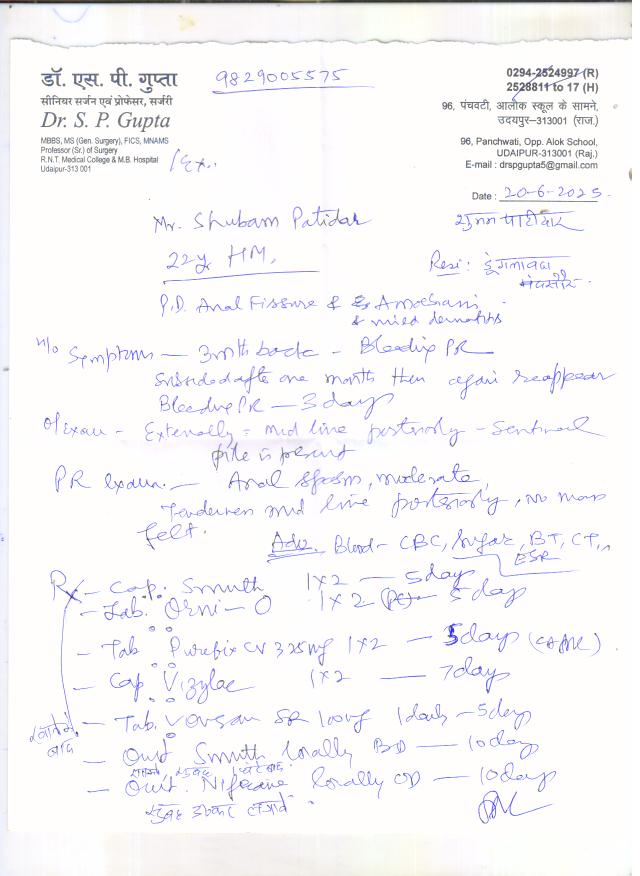 डॉ. एस. पी. गुप्ता
सीनियर सर्जन एवं प्रोफेसर, सर्जरी
Dr. S. P. Gupta
MBBS, MS (Gen. Surgery), FICS, MNAMS
Professor (Sr.) of Surgery
R.N.T. Medical College & M.B. Hospital
Udaipur-313 001
9829005575
0294-2524997 (R)
2528811 to 17 (H)
96, पंचवटी, आलोक स्कूल के सामने,
उदयपुर–313001 (राज.)
96, Panchwati, Opp. Alok School,
UDAIPUR-313001 (Raj.)
E-mail : drspgupta5@gmail.com
Date : 20-6-2025
Mr. Shubam Patidar
22y HM,
Resi :
P.D. Anal Fissure &
& mild
H/o Symptoms — 3mth back - Bleeding PR
subsided after one month then again reappear
Bleeding PR — 3 days
O/Exam - Externally = mid line posteriorly - Sentinal
pile is present
PR exam. — Anal spasm, moderate,
Tenderness mid line posteriorly, No mass
felt.
Adv. Blood - CBC, Sugar, BT, CT,
ESR
Rx - Cap. Smuth 1x2 — 5 days
- Tab. Orni - O 1x2 (PC) — 5 days
- Tab Purefix CV 325mg 1x2 — 5 days
- Cap Vizylac 1x2 — 7 days
- Tab. SR 100mg 1 daily — 5 days
खाने के बाद
- Oint Smuth locally BD — 10 days
- Oint. locally OD — 10 days